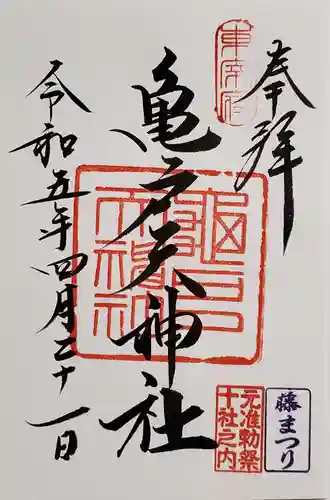 奉拝
東宰府
亀戸天神社
亀戸天神社
令和五年四月二十一日
元准勅祭
十社之内
藤まつり